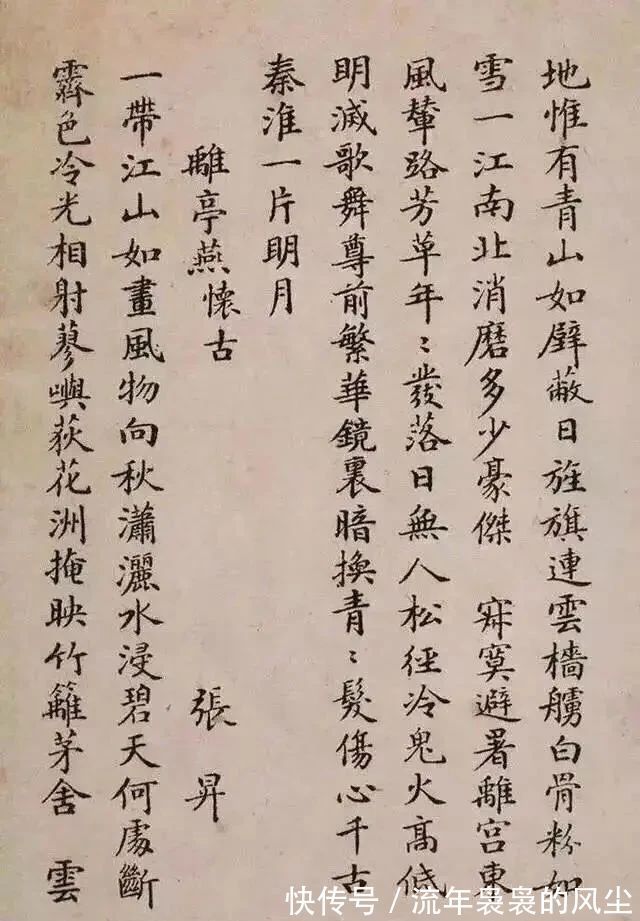 地惟有青山如壁蔽日旌旗連雲檣艣白骨粉如
雪一江南北消磨多少豪傑 寂寞避署離宮東
風輦路芳草年〻發落日無人松徑冷鬼火高低
明滅歌舞尊前繁華鏡裏暗換青〻髮傷心千古
秦淮一片明月
離亭燕懷古 張昇
一帶江山如畫風物向秋瀟灑水浸碧天何處斷
霽色冷光相射蓼嶼荻花洲掩映竹籬茅舍 雲
快传号／流年袅袅的风尘